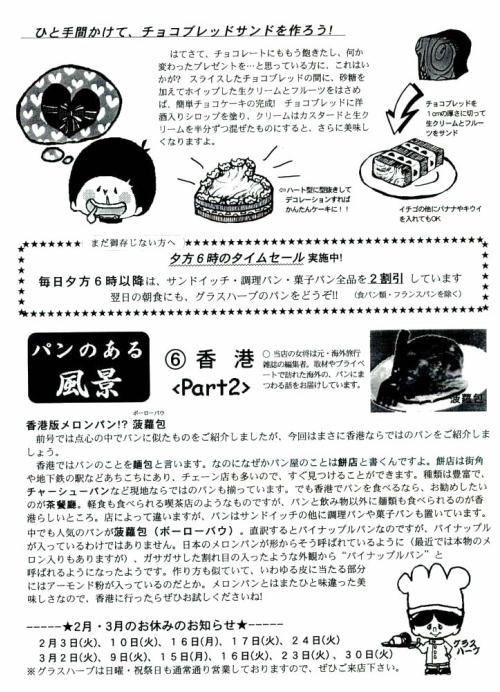 ひと手間かけて、チョコブレッドサンドを作ろう!
はてさて、チョコレートにももう飽きたし、何か
変わったプレゼントを…と思っている方に、これはい
かが? スライスしたチョコブレッドの間に、砂糖を
加えてホイップした生クリームとフルーツをはさめ
ば、簡単チョコケーキの完成! チョコブレッドに洋
酒入りシロップを塗り、クリームはカスタードと生ク
リームを半分ずつ混ぜたものにすると、さらに美味し
くなりますよ。
チョコブレッドを
1cmの厚さに切って
生クリームとフルー
ツをサンド
⇦ハート型に型抜きして
デコレーションすれば
かんたんケーキに!!
イチゴの他にバナナやキウイ
を入れてもOK
まだ御存じない方へ
夕方6時のタイムセール実施中!
毎日夕方6時以降は、サンドイッチ・調理パン・菓子パン全品を2割引しています
翌日の朝食にも、グラスハーブのパンをどうぞ!! (食パン類・フランスパンを除く)
パンのある
風景
⑥香港
<Part2>
○当店の女将は元・海外旅行
雑誌の編集者。取材やプライベ
ートで訪れた海外の、パンにま
つわる話をお届けしています。
菠蘿包
ボーローバウ
香港版メロンパン!? 菠蘿包
前号では点心の中でパンに似たものをご紹介しましたが、今回はまさに香港ならではのパンをご紹介しま
しょう。
香港ではパンのことを麺包と言います。なのになぜかパン屋のことは餅店と書くんですよ。餅店は街角
や地下鉄の駅などあちこちにあり、チェーン店も多いので、すぐ見つけることができます。種類は豊富で、
チャーシューパンなど現地ならではのパンも揃っています。でも香港でパンを食べるなら、お勧めしたい
のが茶餐廳。軽食も食べられる喫茶店のようなものですが、パンと飲み物以外に麺類も食べられるのが香
港らしいところ。店によって違いますが、パンはサンドイッチの他に調理パンや菓子パンも置いています。
中でも人気のパンが菠蘿包(ボーローバウ)。直訳するとパイナップルパンなのですが、パイナップル
が入っているわけではありません。日本のメロンパンが形からそう呼ばれているように(最近では本物のメ
ロン入りもありますが)、ガサガサした割れ目の入ったような外観から"パイナップルパン"と
呼ばれるようになったようです。作り方も似ていて、いわゆる皮に当たる部分
にはアーモンド粉が入っているのだとか。メロンパンとはまたひと味違った美
味しさなので、香港に行ったらぜひお試しくださいね!
-----★2月・3月のお休みのお知らせ★-----
2月3日(火)、10日(火)、16日(月)、17日(火)、24日(火)
3月2日(火)、9日(火)、15日(月)、16日(火)、23日(火)、30日(火)
※グラスハーブは日曜・祝祭日も通常通り営業しておりますので、ぜひご来店下さい。
グラス
ハーブ